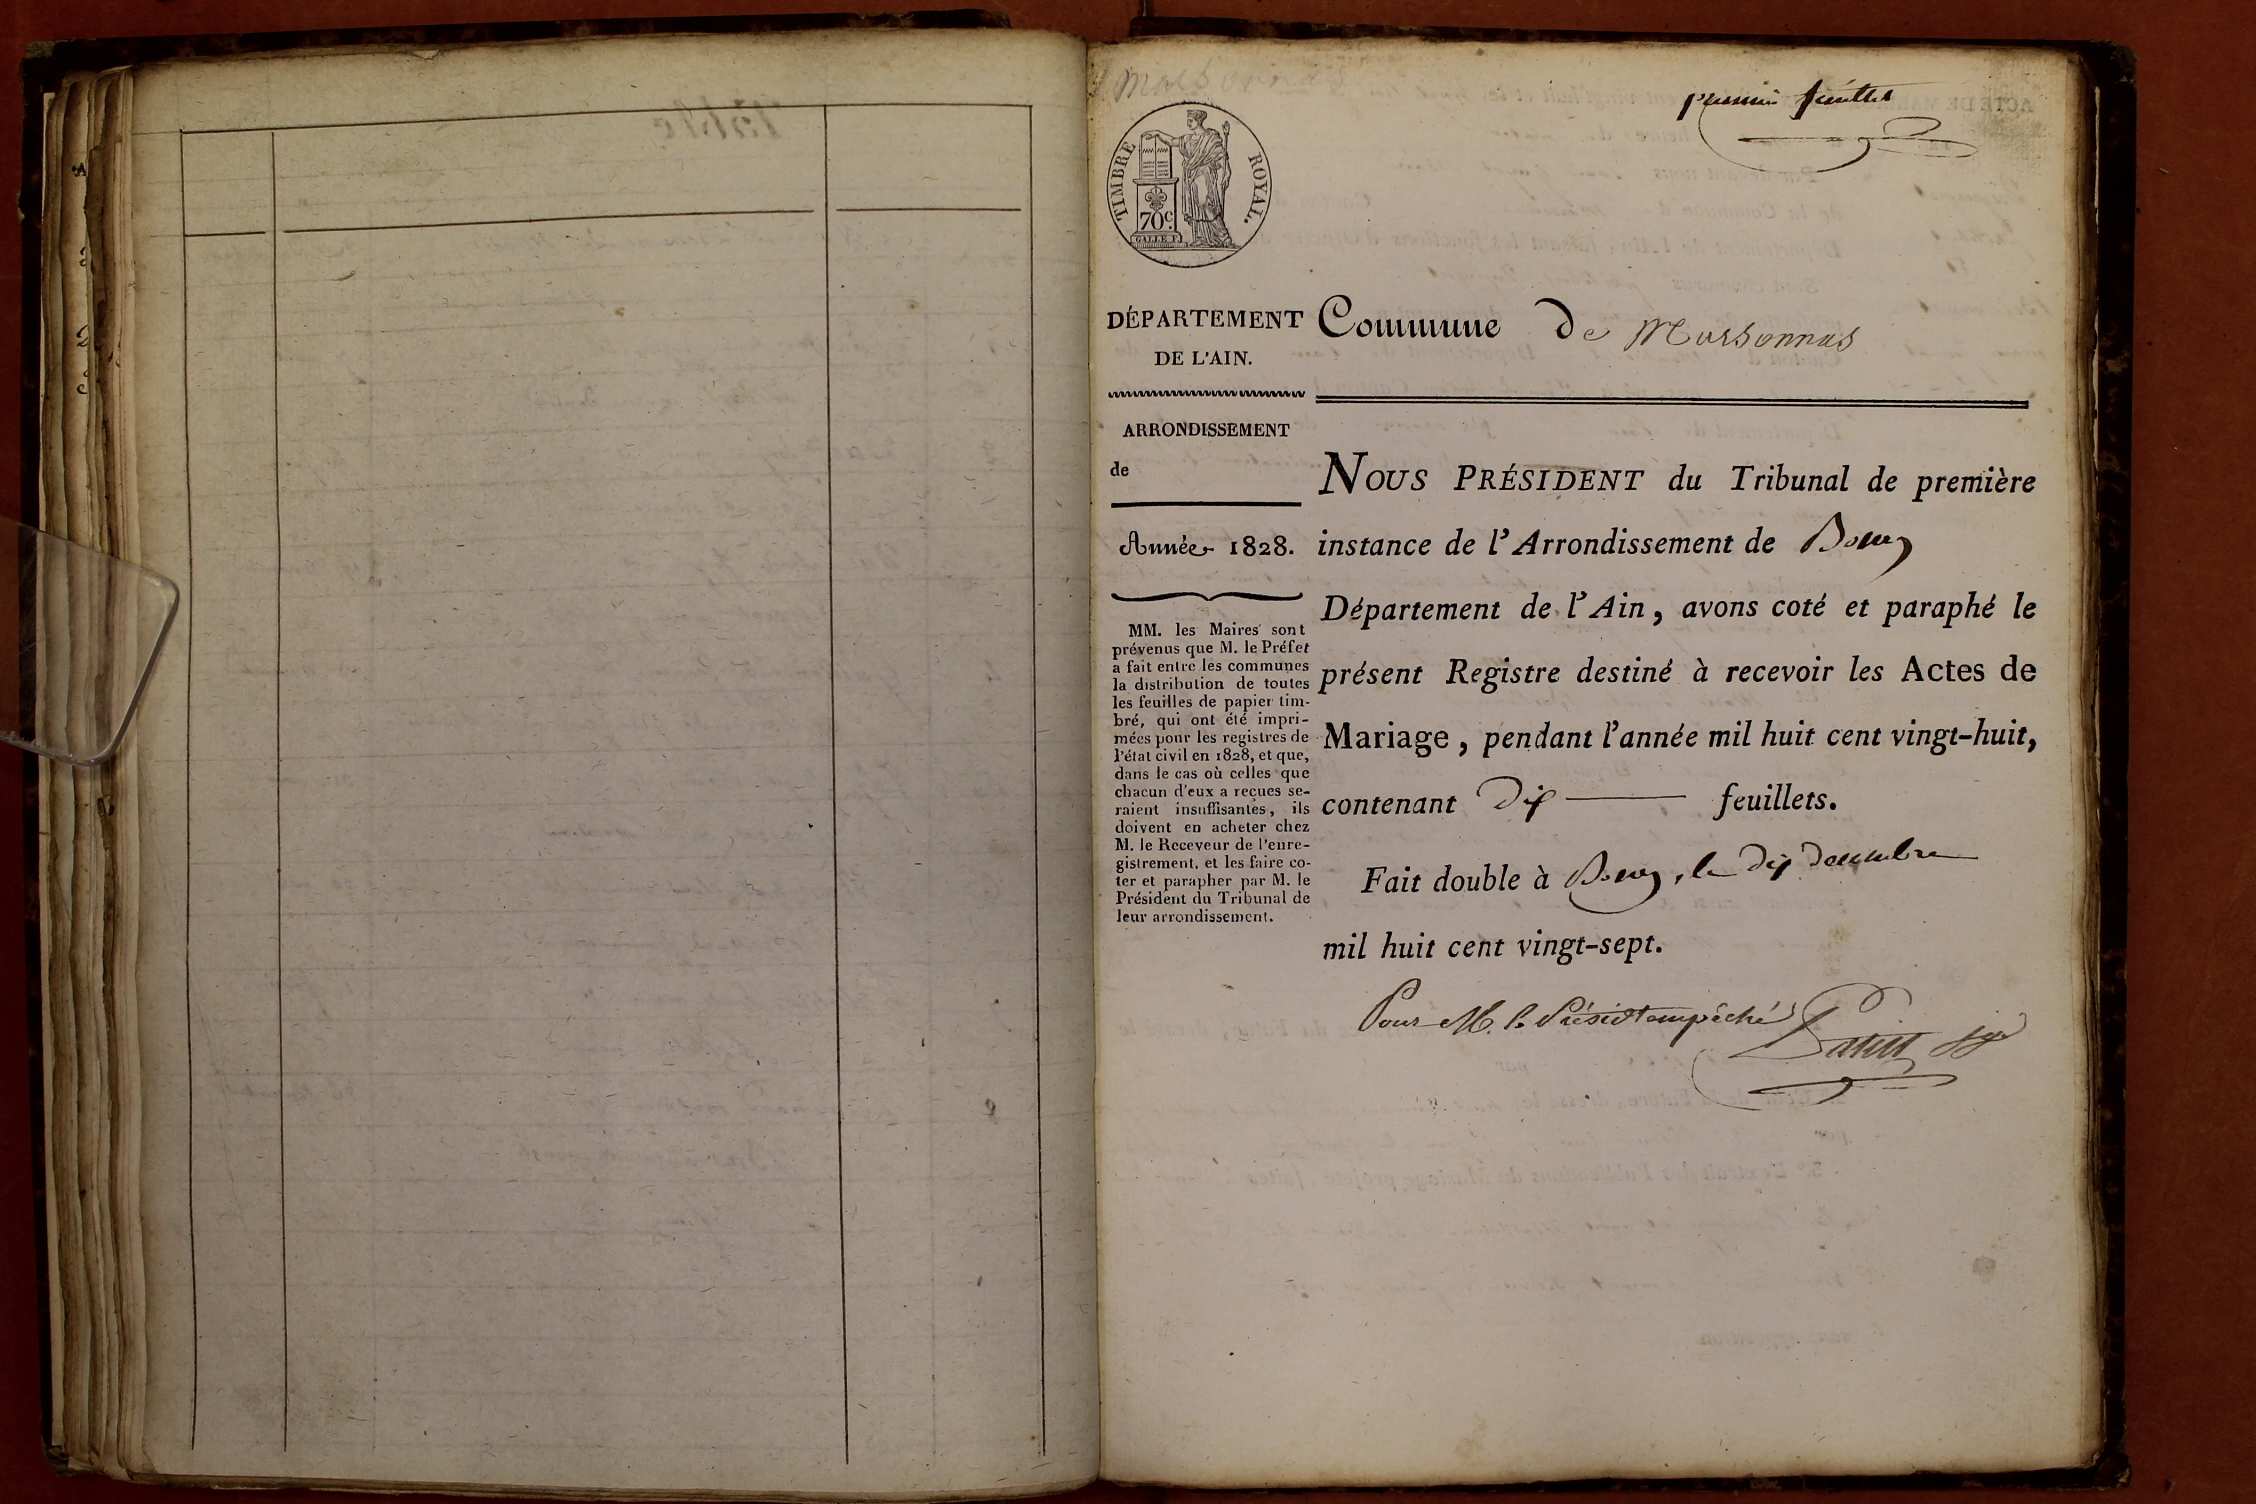 Marsonnas
premier feuillet
TIMBRE ROYAL.
70c.
DÉPARTEMENT
DE L'AIN.
Commune de Marsonnas
ARRONDISSEMENT
de
Année 1828.
MM. les Maires sont
prévenus que M. le Préfet
a fait entre les communes
la distribution de toutes
les feuilles de papier tim-
bré, qui ont été impri-
mées pour les registres de
l'état civil en 1828, et que,
dans le cas où celles que
chacun d'eux a reçues se-
raient insuffisantes, ils
doivent en acheter chez
M. le Receveur de l'enre-
gistrement, et les faire co-
ter et parapher par M. le
Président du Tribunal de
leur arrondissement.
NOUS PRÉSIDENT du Tribunal de première
instance de l'Arrondissement de Bourg
Département de l'Ain, avons coté et paraphé le
présent Registre destiné à recevoir les Actes de
Mariage, pendant l'année mil huit cent vingt-huit,
contenant Dix feuillets.
Fait double à Bourg, le dix Decembre
mil huit cent vingt-sept.
Pour M. le Présidt empêché